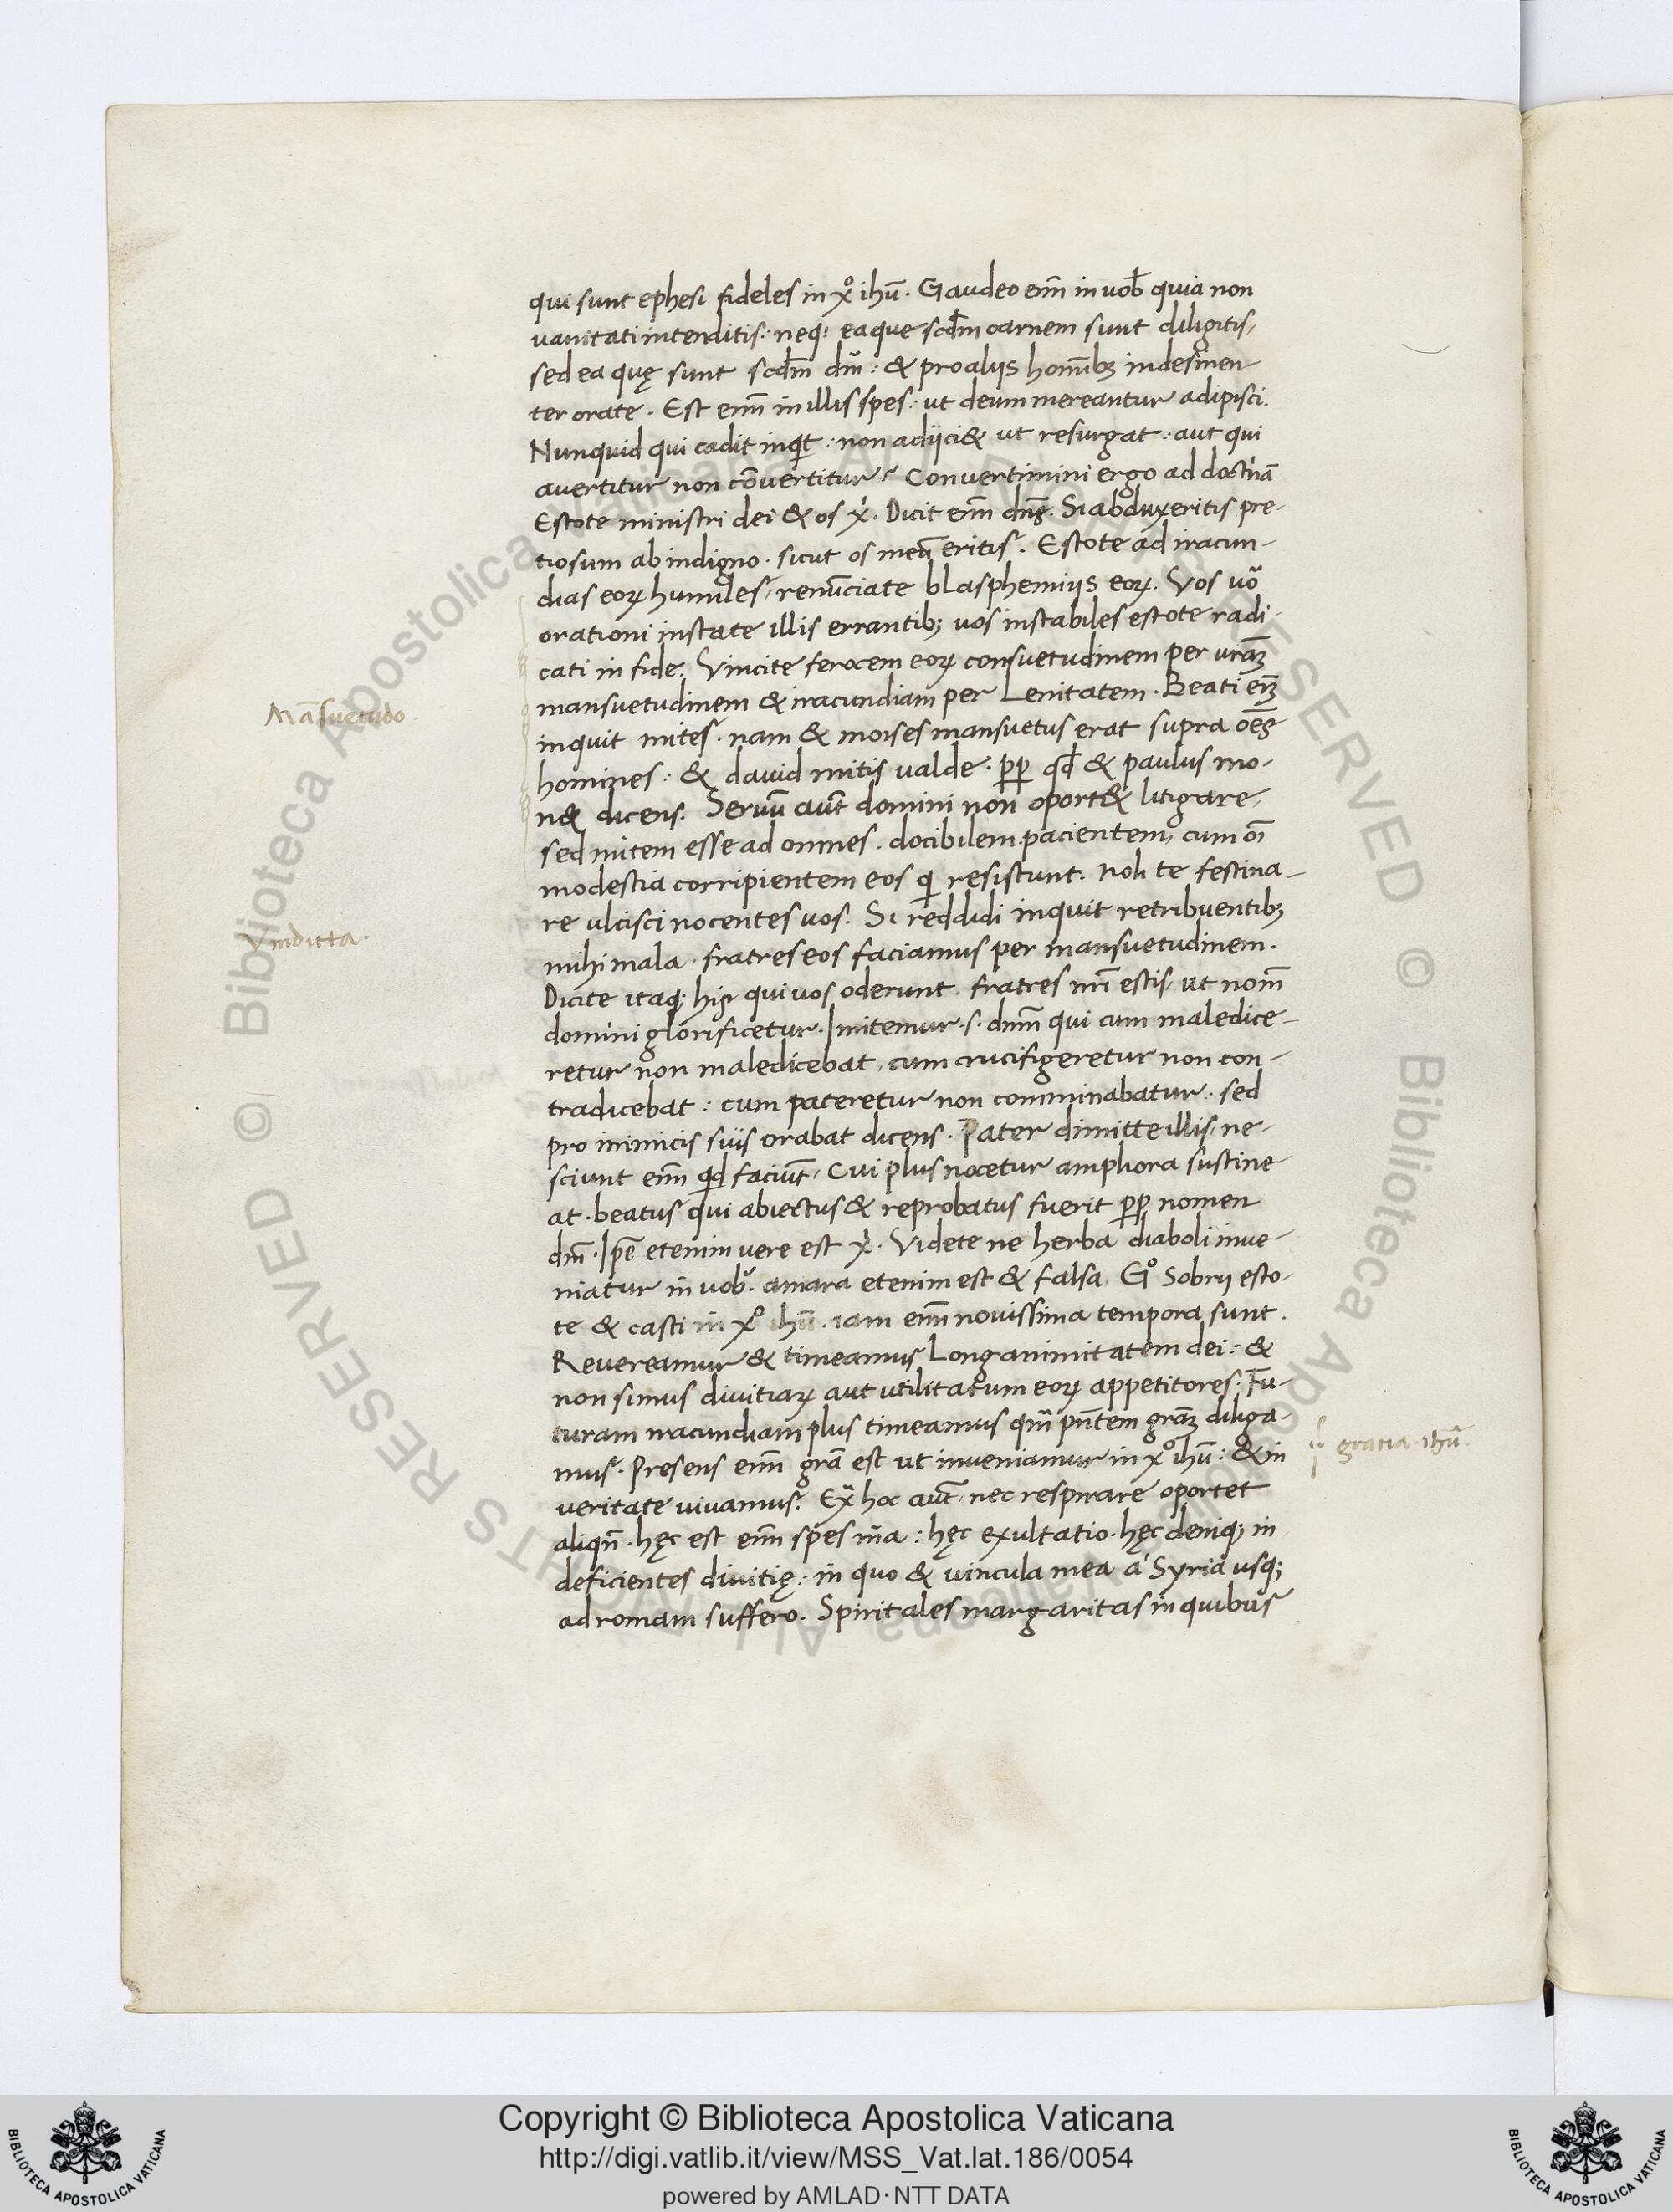 qui sunt ephesi fideles in xº ihū. Gaudeo em̄ in uob̄ quia non
uanitati intenditis: neq; ea que scd̄m carnem sunt diligitis,
sed ea quę sunt scd̄m dm̄: & pro aliis hom̄ibꝫ indesinen
ter orate. Est em̄ in illis spes: ut deum mereantur adipisci.
Nunquid qui cadit inq̄t: non adiici& ut resurgat: aut qui
avertitur non cōvertitur? Convertimini ergo ad doctⁱnā
Estote ministri dei & os xⁱ. Dicit em̄ dn̄s. Si abduxeritis pre-
tiosum ab indigno. sicut os meū eritis. Estote ad iracun-
dias eoꝝ humiles, renūciate blasphemiis eoꝝ. Vos uō
orationi instate illis errantibꝫ uos instabiles estote radi-
cati in fide. Vincite ferocem eoꝝ consuetudinem per ur̄aꝫ
mansuetudinem & iracundiam per Lenitatem. Beati em̄
Māsuetudo.
inquit mites. nam & moises mansuetus erat supra oēs
homines: & dauid mitis ualde. ꝓp̄ qd̄ & paulus mo-
n& dicens. Seruū aut̄ domini non oport& litigare,
sed mitem esse ad omnes. docibilem. pacientem, cum oī
modestia corripientem eos qⁱ resistunt. Noli te festina-
re ulcisci nocentes uos. Si reddidi inquit retribuentibꝫ
Vindicta.
mihi mala. fratres eos faciamus per mansuetudinem.
Dicite itaqꝫ his qui uos oderunt. fratres nr̄i estis, ut nom̄
domini glorificetur. Imitemur .s. dnm̄ qui cum maledice-
retur non maledicebat, cum crucifigeretur non con-
tradicebat: cum pateretur non comminabatur. sed
pro inimicis suis orabat dicens. Pater dimitte illis, ne-
sciunt em̄ qd faciūt, Cui plus nocetur amphora sustine
at. beatus qui abiectus & reprobatus fuerit ꝓp̄ nomen
dm̄. Ip̄e etenim vere est xⁱ. Videte ne herba diaboli inue-
niatur in uob̄. amara etenim est & falsa, Gº Sobrii esto-
te & casti in xº ihū. iam em̄ novissima tempora sunt.
Revereamur & timeamus Longanimitatem dei: &
non simus divitiaꝝ aut utilitatum eoꝝ appetitores. Fu-
turam iracundiam plus timeamus qm̄ pn̄tem gr̄aꝫ diliga-
mus. Presens em̄ gr̄a est ut inueniamur in xº ihū: & in
gratia. ihū.
veritate vivamus. Ex̄ hoc aut̄, nec respirare oportet
aliqn̄. hęc est em̄ spes nr̄a: hęc exultatio. hęc deniqꝫ in
deficientes divitię: in quo & vincula mea a Syria usqꝫ
ad romam suffero. Spiritales margaritas in quibus
Copyright © Biblioteca Apostolica Vaticana
http://digi.vatlib.it/view/MSS_Vat.lat.186/0054
powered by AMLAD·NTT DATA